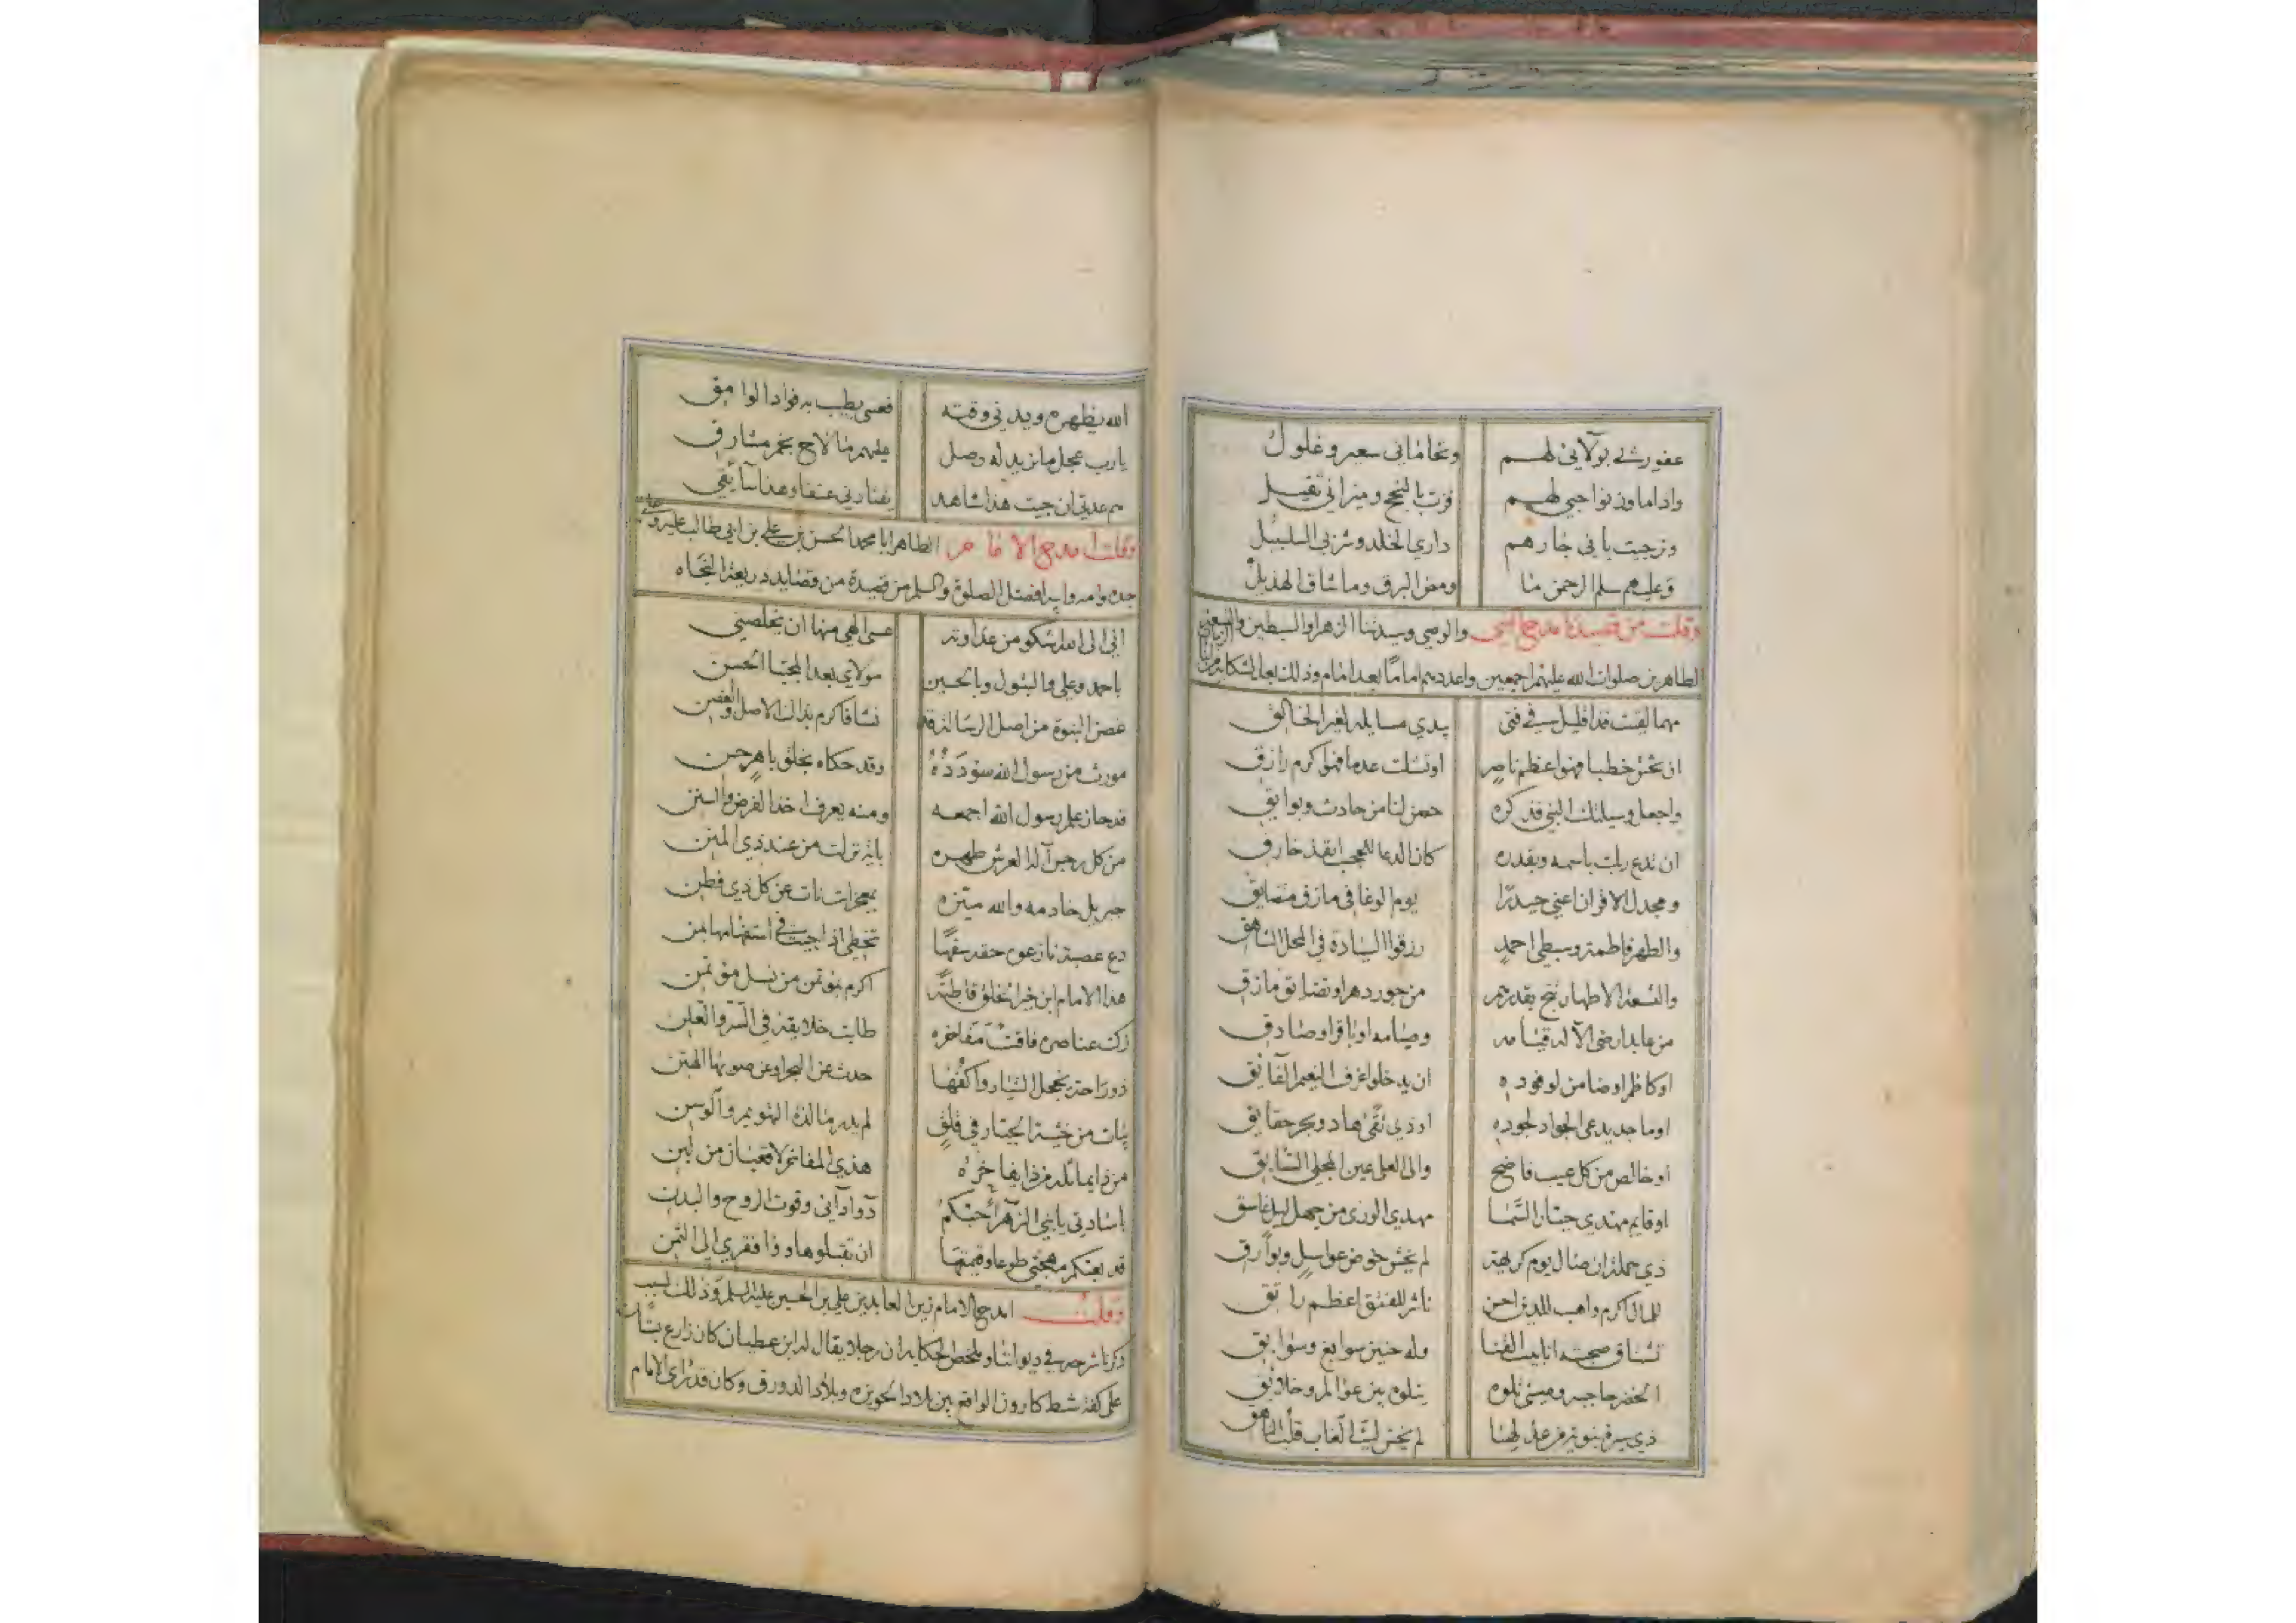 عفورشي بولائي لهم ونجاتي سعير وغلول
واداما وزنواحبي لهم فزت بالنجح وميزاني ثقيل
ونرجيت باني جارهم داري الخلد وشربي السلسبيل
وعليهم سلم الرحمن ما ومض البرق وما شاق الهديل
وقلت من قصيدة امدح النبي والوصي وسيدتنا الزهرا والسبطين والتسعة
الطاهرين صلوات الله عليهم اجمعين واعددهم اماما بعد امام وذلك بعد الشكاية من
مهما لقيت فذا قليل في فتى يبدي مسايله لغير الخالق
ان تخش خطبا فهو اعظم ناصر اوتشك عدما فهو اكرم رازق
واجعل وسيلتك النبي فذكره حصن لنا من حادث وبوايق
ان تدع ربك باسمه وبقدره كان الدعا للعجب انفذ خارق
ومجدل الاقران اعني حيدرا يوم الوغا في مازق متضايق
والطهر فاطمة وسبطي احمد رزقوا السيادة في المحل الشاهق
والتسعة الاطهار نج بقدرهم من جور دهر او تضايق مازق
من عابد ارضى الآله قيامه وصيامه او باقر او صادق
او كاظم او ضامن لوفوده ان يدخلوا غرف النعيم الفايق
او ماجد يدعى الجواد لجوده او ذي تقى هاد وبحر حقايق
او خالص من كل عيب فاضح والى العلى عين المجلي السابق
او قايم مهدي جبار السما مهدي الورى من جهل ليل غاسق
ذي حملة ان صال يوم كريهة لم يخش خوض عواسل وبوارق
للمال اكرم واهب للدين احسن ناثر للفتق اعظم راتق
تشتاق صحبته انابيب القنا وله حنين سوابغ وسوابق
الخضر حاجبه وعيسى تلوه يتلوه بين عوالم وخلائق
لم يخش ليث الغاب قلب
الله يظهره ويدني وقته فعسى يطيب به فواد الوامق
يارب عجل ما نريد له وصل عليهم ما لاح نجم مشارق
هم عدتي ان جيت هذا شاهد يقتادني عنفا وهذا سائقي
وقلت امدح الامام الطاهر ابا محمد الحسن بن علي بن ابي طالب عليه وعلى
جده وامه وابيه افضل الصلوة والسلم من قصيدة من قصايد دريعة النجاه
اني الى الله اشكو من عداوته عسى الهي منها ان يخلصني
باحمد وعلي والبتول وبالحسين مولاي بعد المجتبا الحسن
غصن النبوة من اصل الرسالة قد نشا فاكرم بذاك الاصل والغصن
مورث من رسول الله سوددُه وقد حكاه بخلق باهر حسن
قد حاز علم رسول الله اجمعه ومنه يعرف اخذ الفرض والسنن
من كل رجس آله العرش طهره باية نزلت من عند ذي المنن
جبريل خادمه والله ميزه بمعجزات نات عن كل ذي فطن
دع عصبة نازعوه حقه سفها تخطي اذا جيت في استفهامها بمن
هذا الامام ابن خير الخلق قاطبة اكرم بموتمن من نسل موتمن
زكت عناصره فاقت مفاخره طابت خلايقه في السر والعلن
ذو راحة يخجل التيار واكفها حدث عن البحر او عن صوبها الهتن
يبات من خشية الجبار في قلق لم يدر ما لذة التهويم والوسن
هذي المفاخر لا قعبان من لبن
يا سادتي يا بني الزهرا أحبكم دوا دائي وقوت الروح والبدن
قد بعتكم مهجتي طوعا وقيمتها ان تقبلوها دوا فقري الى الثمن
وقلت امدح الامام زين العابدين علي بن الحسين عليه السلم وذلك لسبب
ذكرنا شرحه في ديواننا وملخص الحكاية ان رجلا يقال له ابن عطيان كان زارع
على كفة شط كارون الواقع بين بلاد الحويزه وبلاد الدورق وكان قد نرى الامام